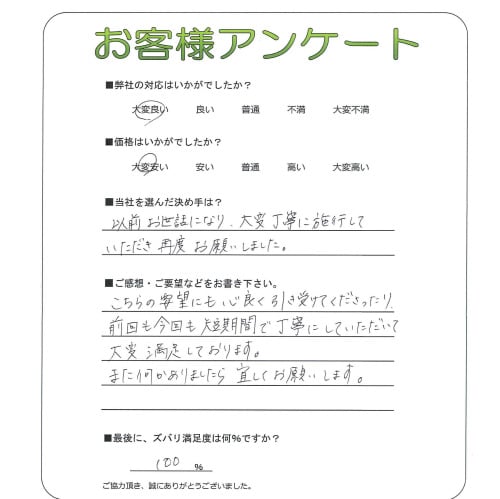 お客様アンケート
■弊社の対応はいかがでしたか？
大変良い 良い 普通 不満 大変不満
■価格はいかがでしたか？
大変安い 安い 普通 高い 大変高い
■当社を選んだ決め手は？
以前お世話になり、大変丁寧に施行して
いただき再度お願いしました。
■ご感想・ご要望などをお書き下さい。
こちらの要望にも心良く引き受けてくださったり、
前回も今回も短期間で丁寧にしていただいて
大変満足しております。
また何かありましたら宜しくお願いします。
■最後に、ズバリ満足度は何%ですか？
100 %
ご協力頂き、誠にありがとうございました。